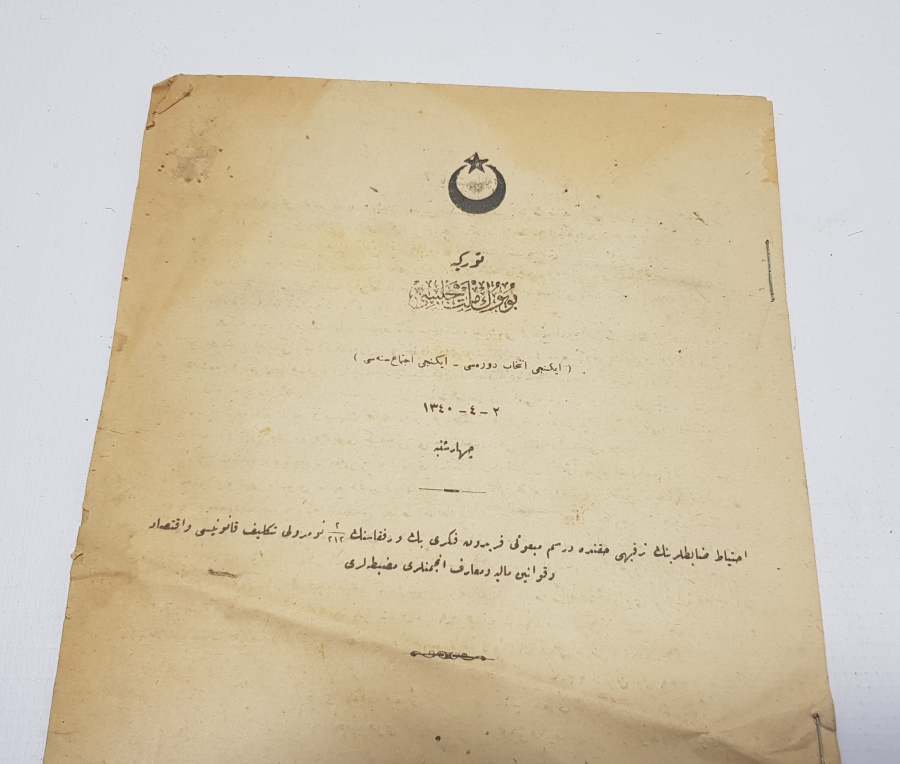 توركيه
بويوك ملت مجلسى
( ايكنجى انتخاب دوره‌سى – ايكنجى اجتماع سنه‌سى )
٢ – ٤ – ١٣٤٠
چهارشنبه
احتياط ضابطلرينك ترفيهى حقنده درسم مبعوثى فريدون فكرى بك ورفقاسنك ٢/٢١٢ نومرولى تكليف قانونيسى واقتصاد
وقوانين ماليه ومعارف انجمنلرى مضبطه‌لرى